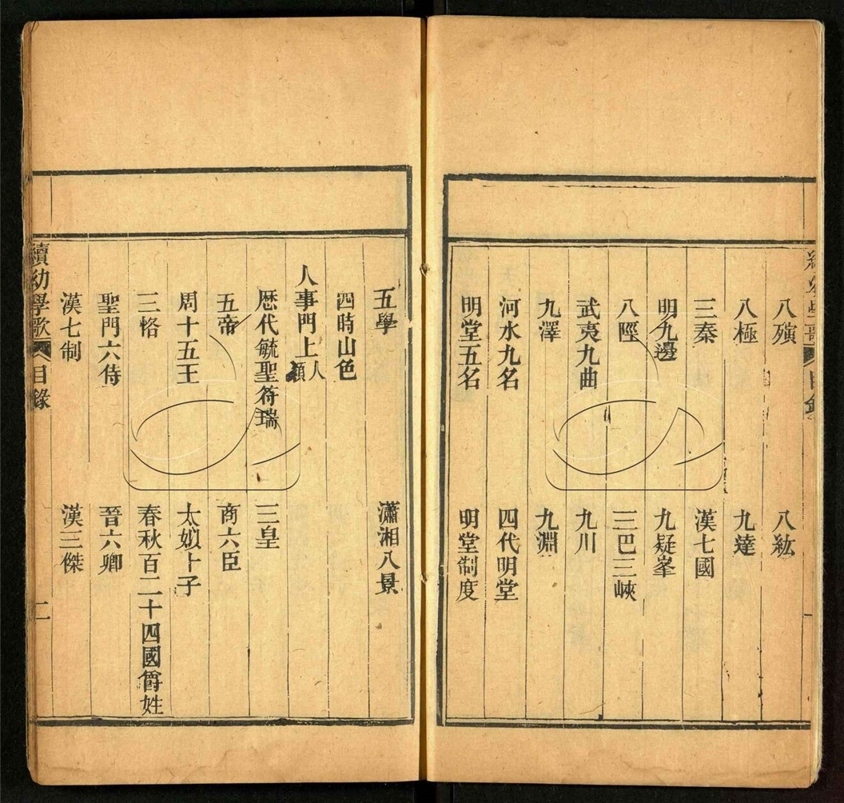 八殥 八紘
八極 九達
三秦 漢七國
明九邊 九疑峯
八陘 三巴三峽
武夷九曲 九川
九澤 九淵
河水九名 四代明堂
明堂五名 明堂制度
五學 瀟湘八景
四時山色
人事門上人類
歷代毓聖符瑞 三皇
五帝 商六臣
周十五王 太姒十子
三恪 春秋百二十四國爵姓
聖門六侍 晉六卿
漢七制 漢三傑
續幼學歌 目錄 二